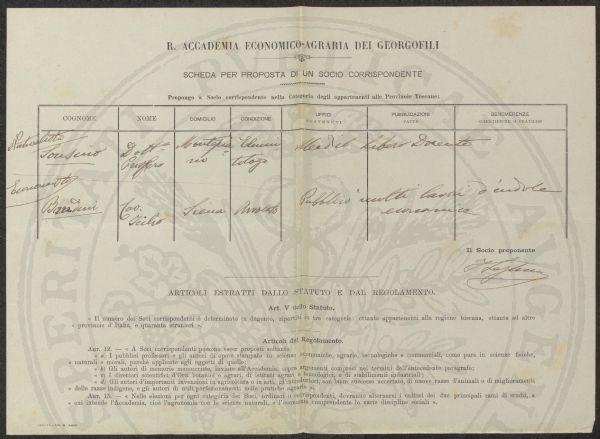 R. ACCADEMIA ECONOMICO-AGRARIA DEI GEORGOFILI
SCHEDA PER PROPOSTA DI UN SOCIO CORRISPONDENTE
Propongo a Socio corrispondente nella Categoria degli appartenenti alle Provincie Toscane:
COGNOME NOME DOMICILIO CONDIZIONE UFFICI SOSTENUTI PUBBLICAZIONI FATTE BENEMERENZE
Sonsino Dott. Medico Libero Docente
Economista
Cav. Siena Avvocato Pubblicò molti lavori d'indole
economica
Il Socio proponente
ARTICOLI ESTRATTI DALLO STATUTO E DAL REGOLAMENTO.
Art. V dello Statuto.
« Il numero dei Soci corrispondenti è determinato in dugento, ripartiti in tre categorie: ottanta appartenenti alla regione toscana, ottanta ad altre
« provincie d'Italia, e quaranta stranieri ».
Articoli del Regolamento.
ART. 12. — « A Soci corrispondenti possono esser proposti soltanto:
« a) I pubblici professori e gli autori di opere stampate in scienze economiche, agrarie, tecnologiche e commerciali, come pure in scienze fisiche,
« naturali e morali, purchè applicate agli oggetti di quelle;
« b) Gli autori di memorie manoscritte, inviate all'Accademia, sopra argomenti compresi nei termini dell'antecedente paragrafo;
« c) I direttori scientifici d'Orti botanici o agrari, di istituti agrari e tecnologici, e di stabilimenti industriali;
« d) Gli autori d'importanti invenzioni in agricoltura o in arti, gl'introduttori, con buon successo accertato, di nuove razze d'animali o di miglioramenti
« delle razze indigene, e gli autori di utili perfezionamenti nelle pratiche agrarie ».
ART. 15. — « Nelle elezioni per ogni categoria dei Soci, ordinari o corrispondenti, dovranno alternarsi i cultori dei due principali rami di studi, a
« cui intende l'Accademia, cioè l'agronomia con le scienze naturali, e l'economia comprendente le varie discipline sociali ».